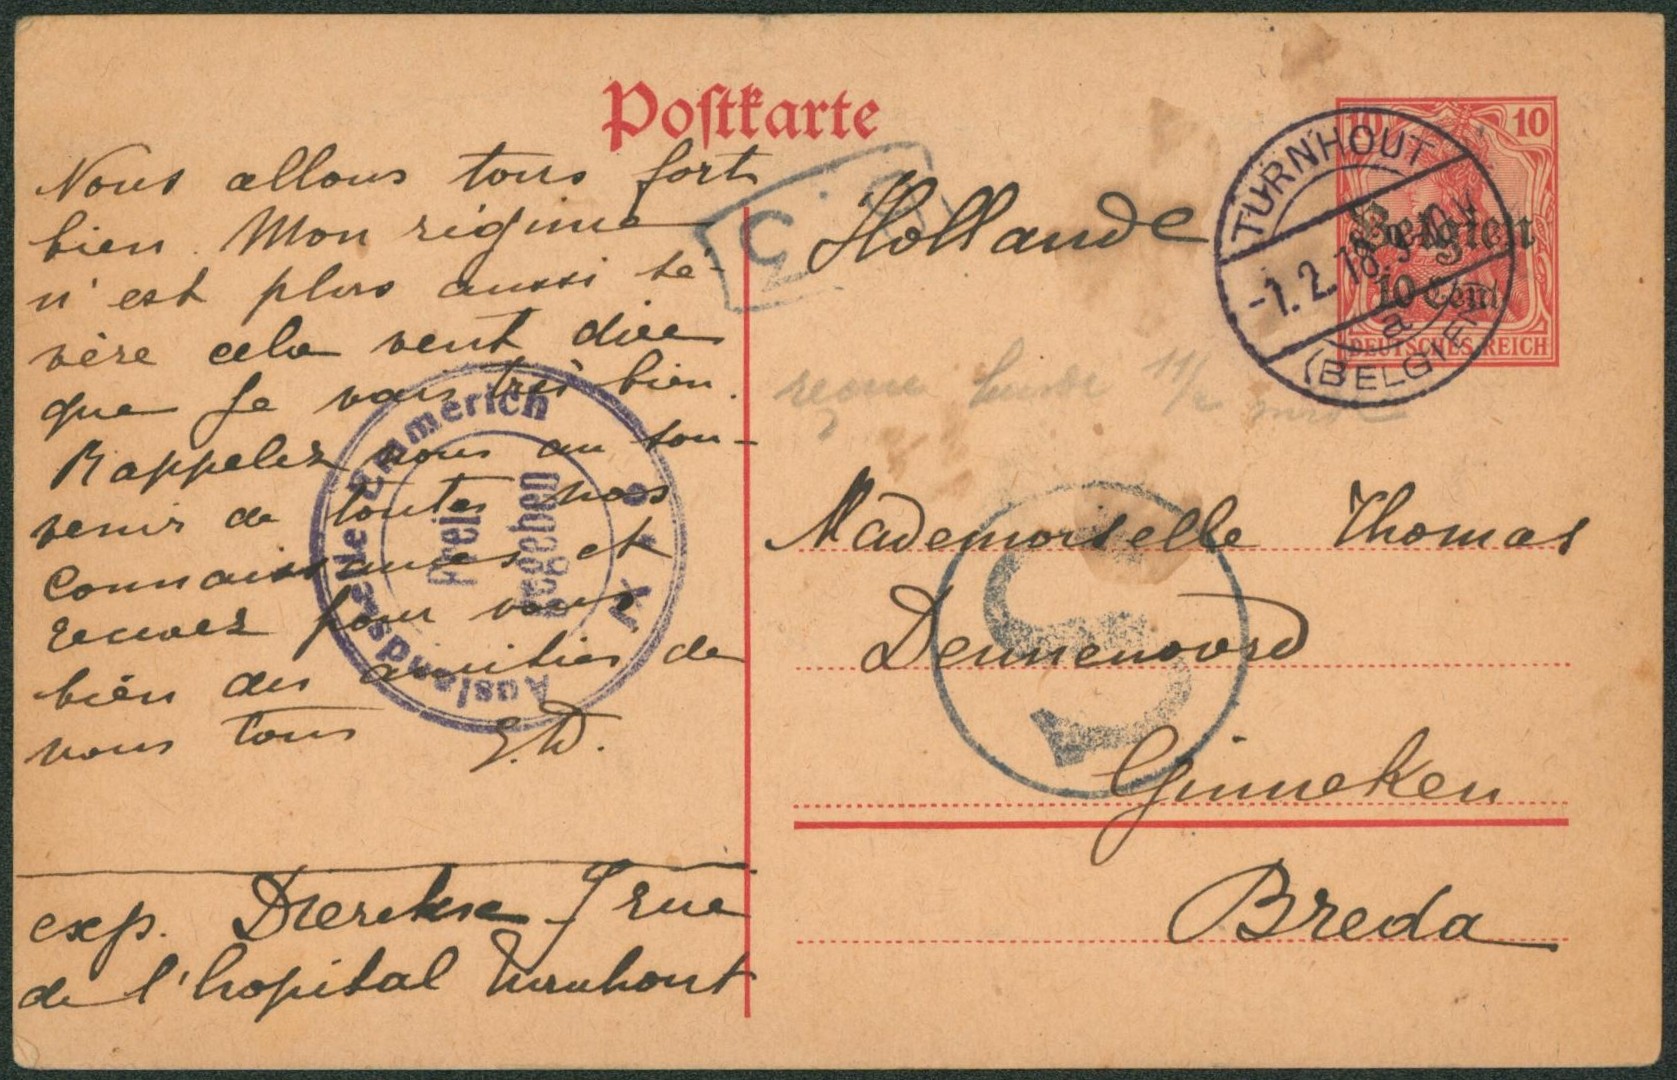 Postkarte
Nous allons tous fort
bien. Mon régime
n'est plus aussi sé-
vère cela veut dire
que je vais très bien.
Rappelez nous au sou-
venir de toutes nos
connaissances et
recevez pour vous
bien des amitiés de
nous tous E.D.
exp. Dierckx 7 rue
de l'hopital Turnhout
Hollande
Mademoiselle Thomas
Dennenoord
Ginneken
Breda
10 10
Belgien
10 Cent.
DEUTSCHES REICH
TURNHOUT
-1.2.18.
a
(BELGIEN)
Auslandsstelle Emmerich
Freigegeben
S